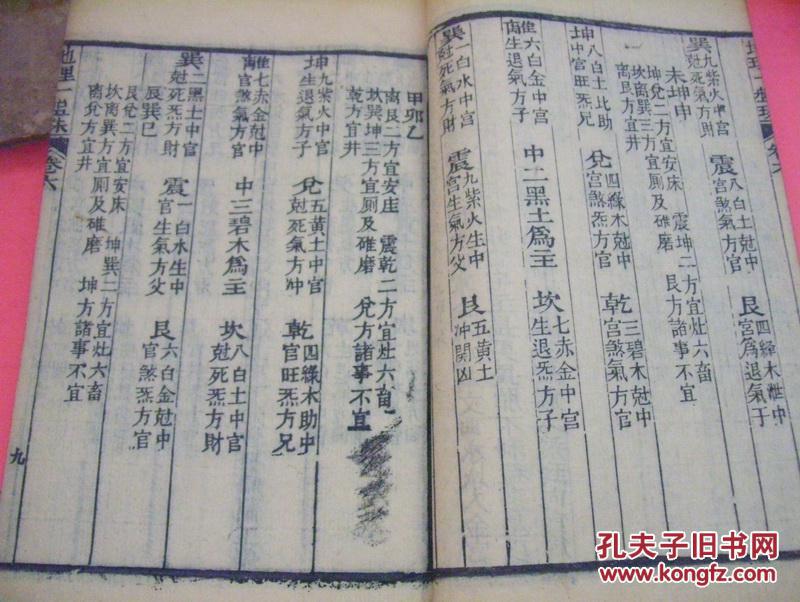 巽 九紫火中宮尅死氣方財 震 八白土尅中宮煞氣方官 艮 四綠木泄中宮為退氣子
未坤申
坤兌二方宜安床 震坤二方宜灶六畜
坎離巽三方宜厠及碓磨 艮方諸事不宜
離艮方宜井
坤 八白土比助中宮旺炁兄 兌 四綠木尅中宮煞炁方官 乾 三碧木尅中宮煞氣方官
中二黑土為主 坎 七赤金中宮生退炁方子
離 六白金中宮生退氣方子
巽 一白水中宮尅死氣方財 震 九紫火生中宮生氣方父 艮 五黃土冲関凶
甲卯乙
離艮二方宜安床 震乾二方宜灶六畜
坎巽坤三方宜厠及碓磨 兌方諸事不宜
乾方宜井
坤 九紫火中宮生退氣方子 兌 五黃土中宮尅死氣方冲 乾 四綠木助中宮旺炁方兄
離 七赤金尅中宮煞氣方官 中三碧木為主 坎 八白土中宮尅死炁方財
巽 二黑土中宮尅死炁方財 震 一白水生中宮生氣方父 艮 六白金尅中宮煞炁方官
辰巽巳
艮兌二方宜安床 坤巽二方宜灶六畜
坎離震三方宜厠及碓磨 坤方諸事不宜
離兌方宜井
地理一盤珠 卷六
九
孔夫子旧书网
www.kongfz.com